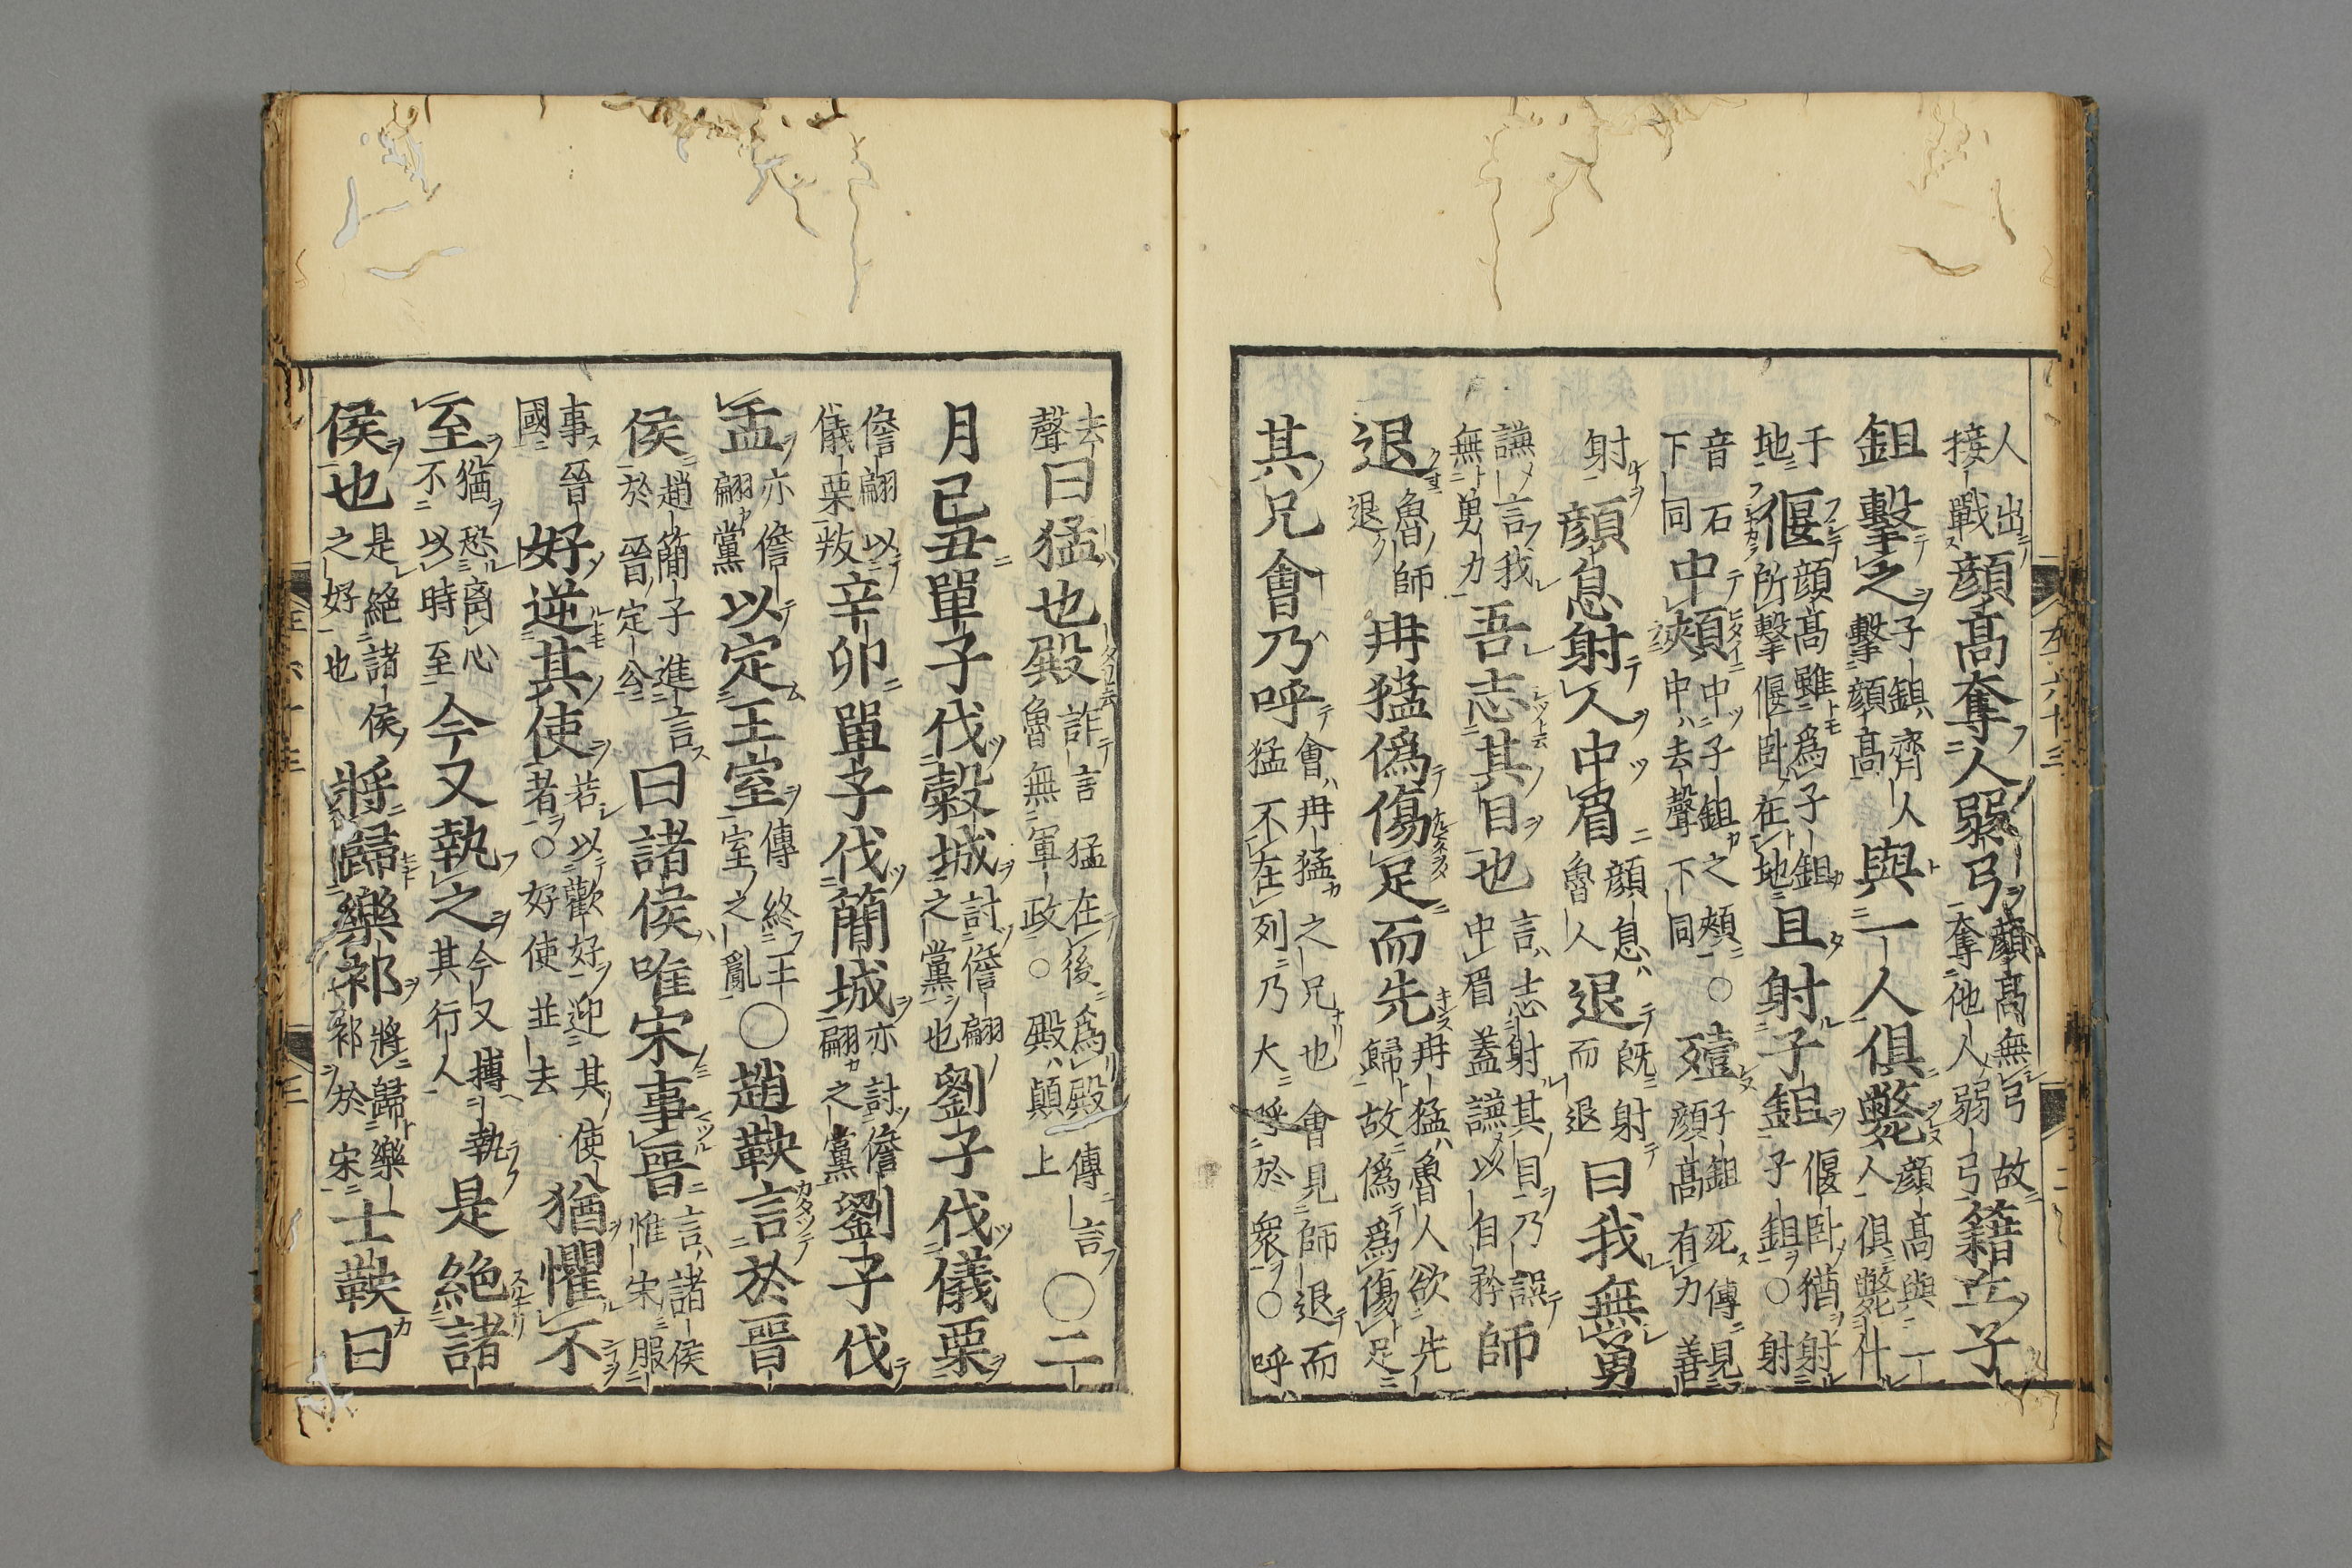 人出接戰顔髙奪人弱弓顔髙無弓故奪他人弱弓籍丘子
鉏擊之子鉏齊人擊顔髙與一人俱斃顔髙與一人俱斃仆
于地偃顔髙雖爲子鉏所擊偃卧在地且射子鉏偃卧猶射子鉏○射
音石下同中頰中子鉏之頰中去聲下同○殪子鉏死傳見顔髙有力善
射顔息射人中眉顔息魯人退既射而退曰我無勇
謙言我無勇力吾志其目也言志射其目乃誤中眉蓋謙以自矜師
退魯師退冉猛偽傷足而先冉猛魯人欲先歸故偽爲傷足
其兄會乃呼會冉猛之兄也會見師退而猛不在列乃大呼於衆○呼
去聲曰猛也殿詐言猛在後爲殿傳言魯無軍政○殿顛上○二
月己丑單子伐穀城討儋翩之黨也劉子伐儀栗
儋翩以儀栗叛辛卯單子伐簡城亦討儋翩之黨劉子伐
盂亦儋翩黨以定王室傳終王室之亂○趙鞅言於晉
侯趙簡子進言於晉定公曰諸侯唯宋事晉言諸侯惟宋服
事晉國好逆其使若以歡好迎其使者○好使並去猶懼不
至猶恐離心不以時至今又執之今又摶執其行人是絶諸
侯也是絶諸侯之好也將歸樂祁將歸樂祁於宋士鞅曰